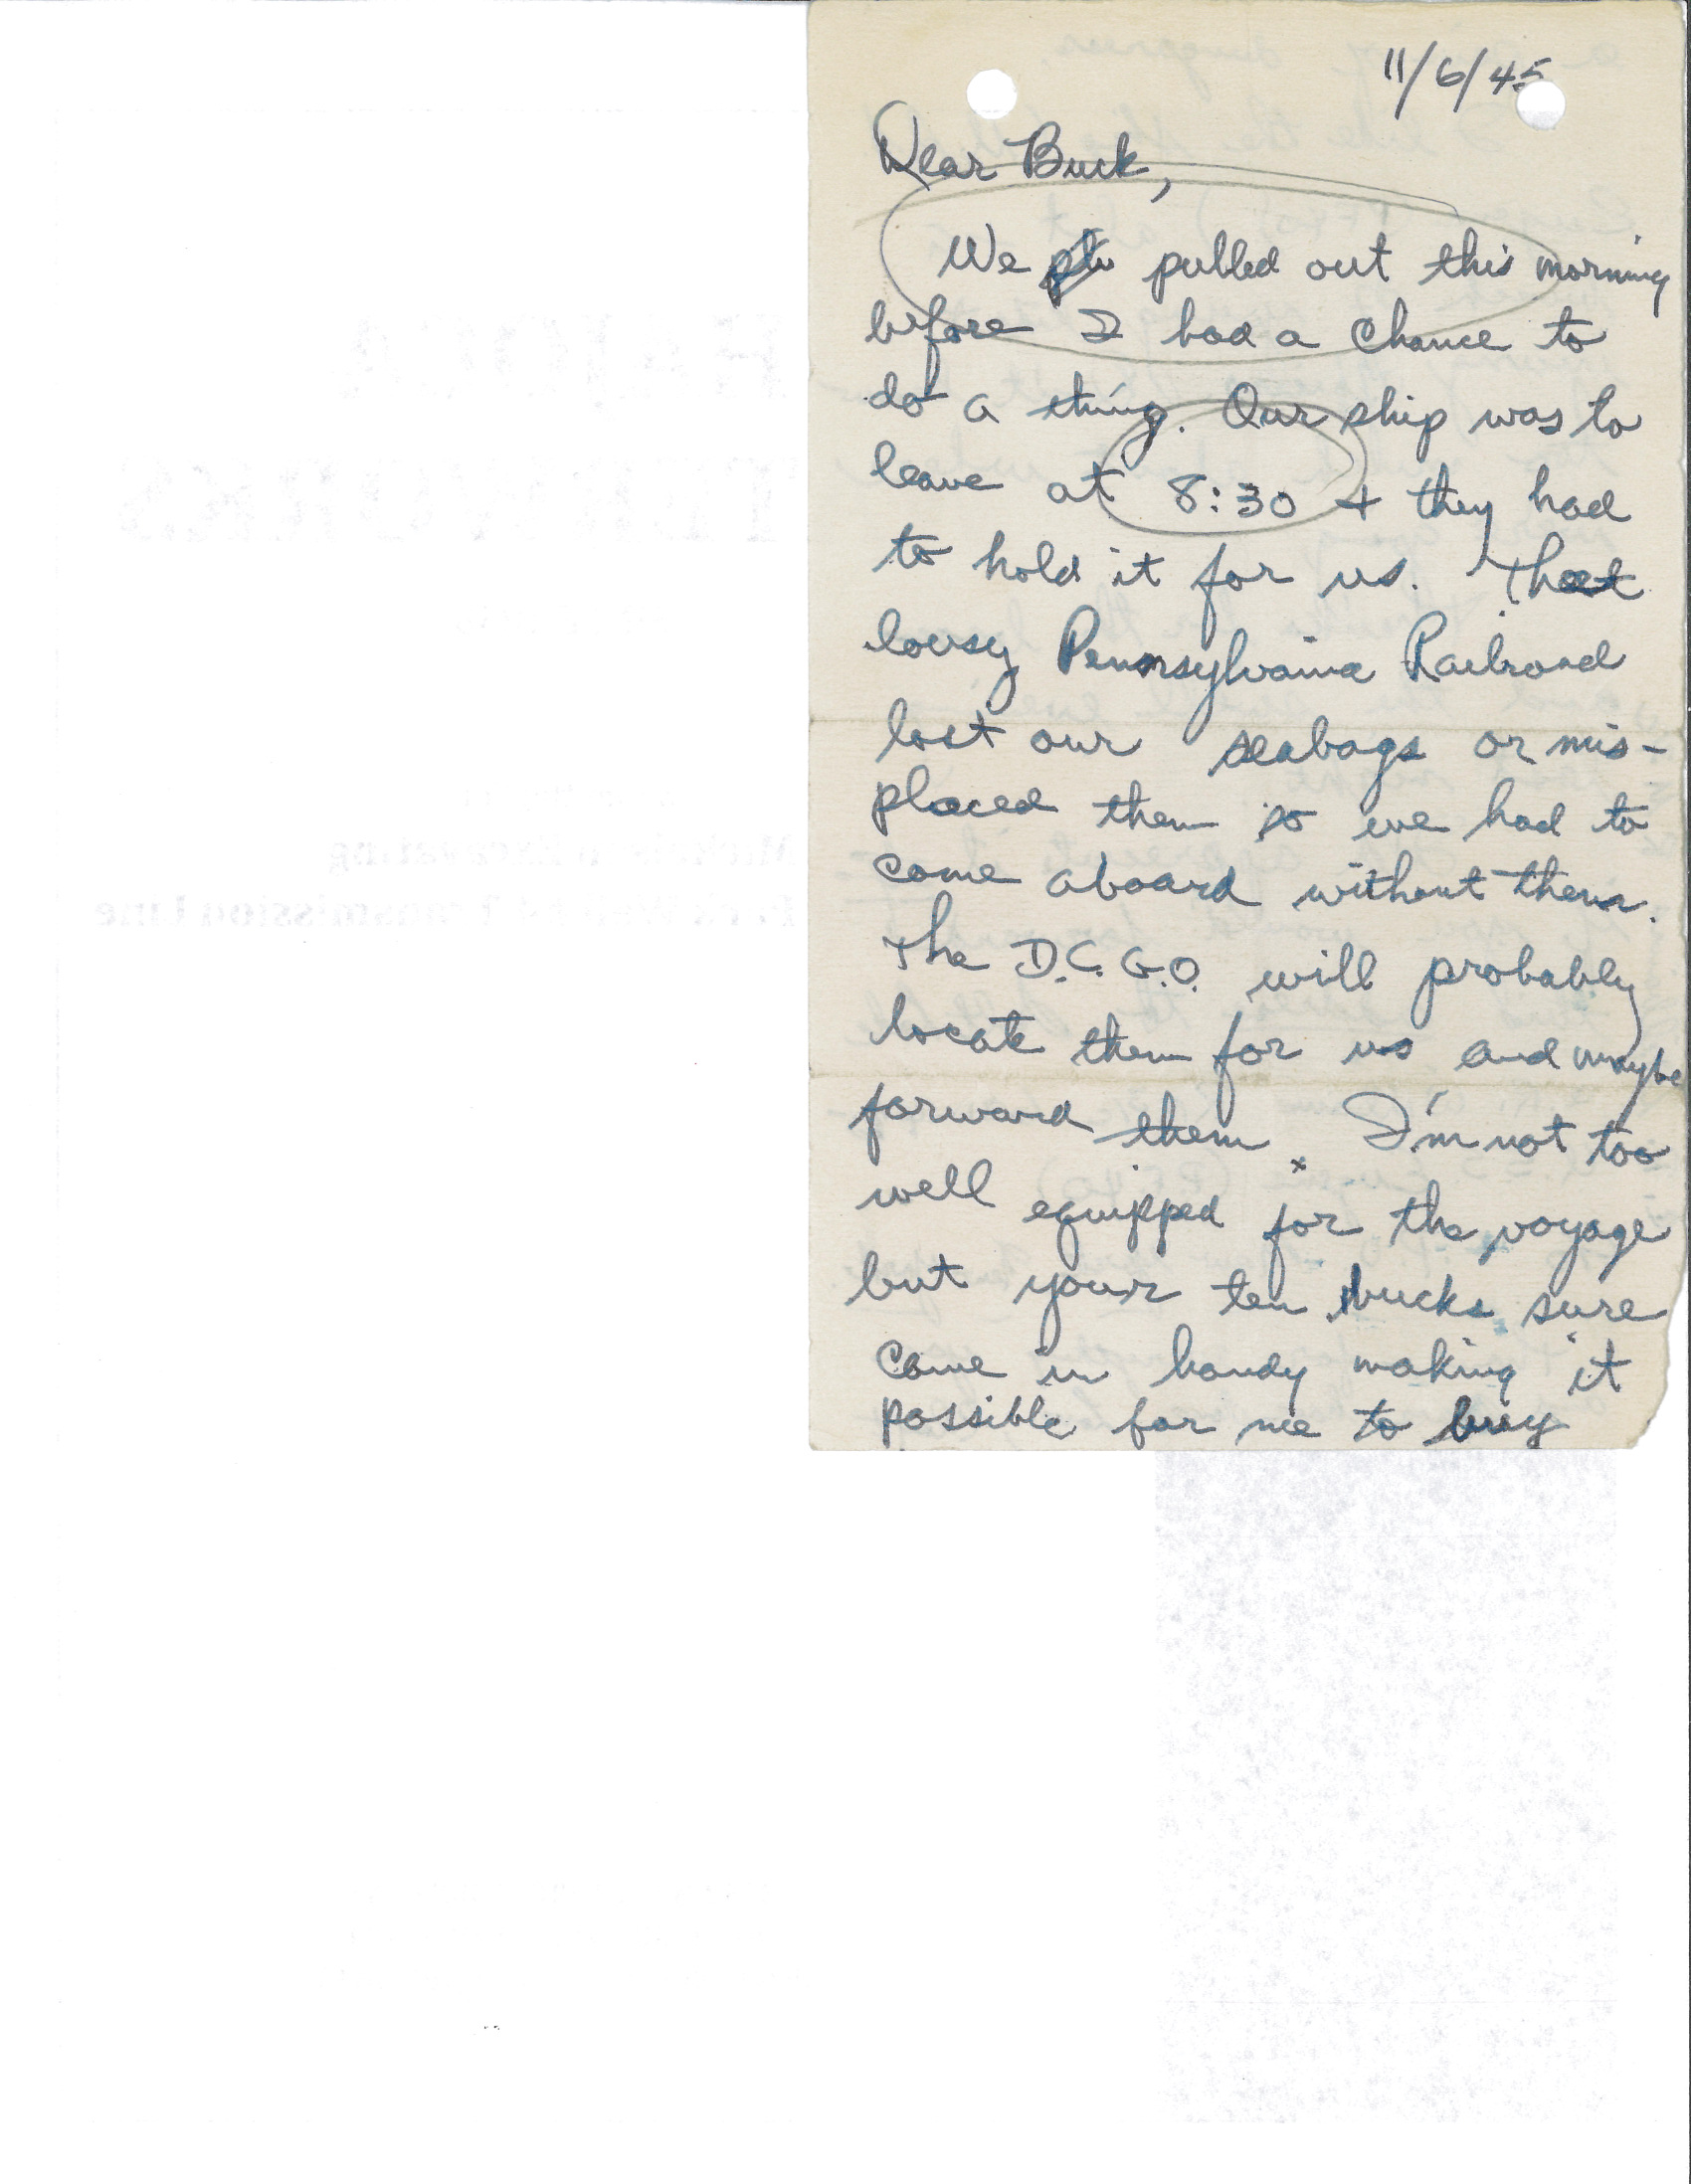 11/6/45
Dear Buck,
We pulled out this morning
before I had a chance to
do a thing. Our ship was to
leave at 8:30 + they had
to hold it for us. That
lousy Pennsylvania Railroad
lost our seabags or mis-
placed them so we had to
come aboard without them.
The D.C.G.O. will probably
locate them for us and maybe
forward them. I'm not too
well equipped for the voyage
but your ten bucks sure
came in handy making it
possible for me to buy